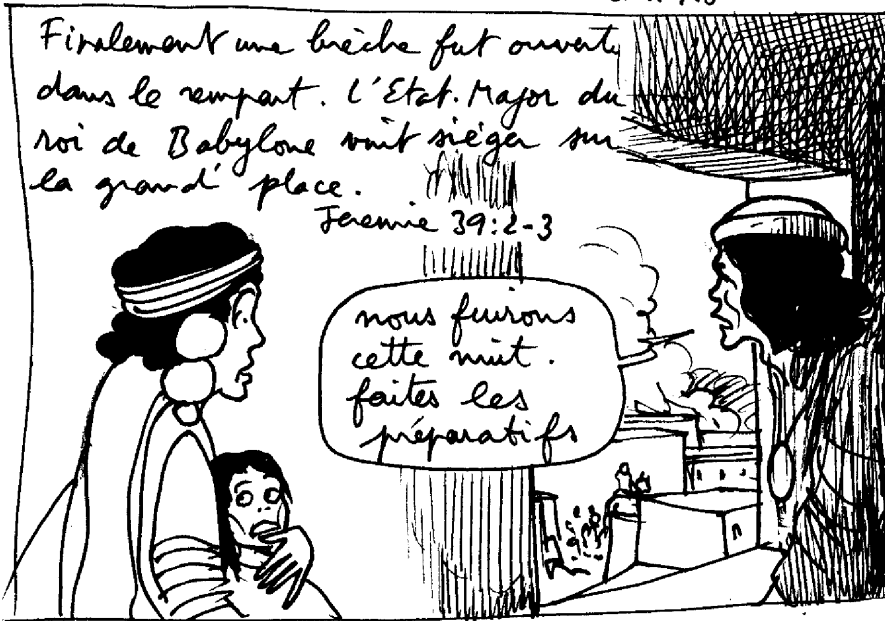 Finalement une brèche fut ouverte
dans le rempart. L'Etat-Major du
roi de Babylone vint siéger sur
la grand' place.
Jeremie 39:2-3
nous fuirons
cette nuit.
faites les
préparatifs